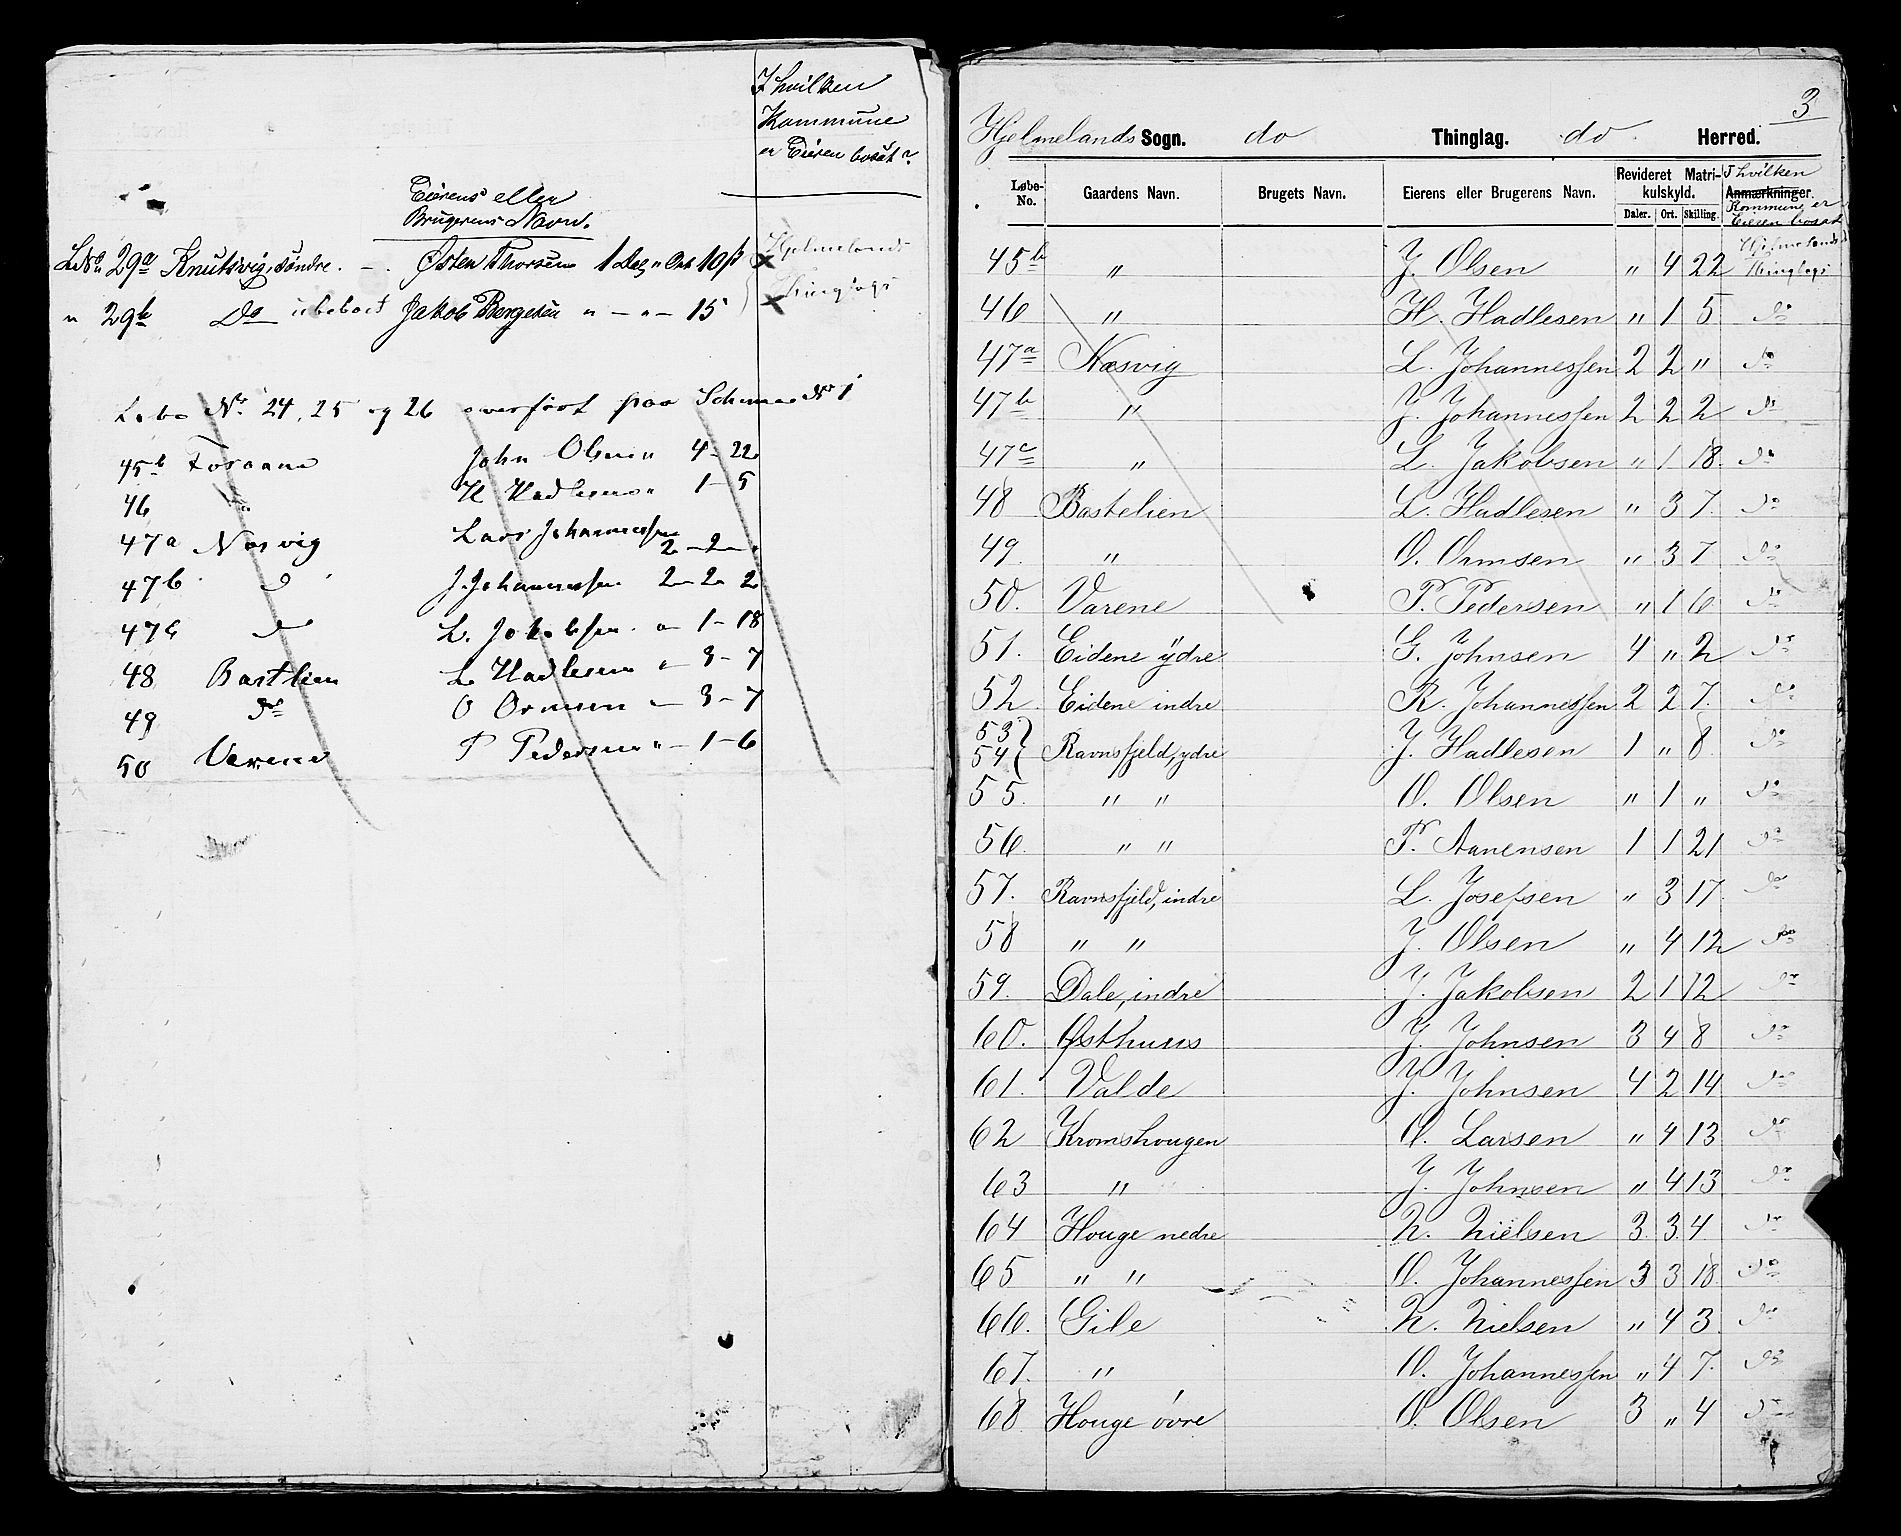 I hvilken
Kommune
er Eieren bosat?
Eierens eller
Brugerens Navn.
LNo 29a Knutsvig, söndre. - Østen Thorsen 1 Dal " Ort 10 ß Hjelmelands
" 29b Do ubeboet Jakob Bergesen " - " - 15 Thinglags
Løbe No 24, 25 og 26 overført paa Schema No 1
45b Fosaane John Olsen " 4 - 22
46 " H Hadlesen " 1 - 5
47a Næsvig Lars Johannessen 2 - 2 - "
47b do J. Johannessen 2 - 2 - 2
47c do L. Jakobsen " 1 - 18
48 Bastlien L Hadlesen " 3 - 7
49 do O Ormsen - 3 - 7
50 Varene P Pedersen " - 1 - 6
3
Hjelmelands Sogn. do Thinglag. do Herred.
Løbe-No. Gaardens Navn. Brugets Navn. Eierens eller Brugerens Navn. Revideret Matrikulskyld. Daler. Ort. Skilling. Anmærkninger. I hvilken Kommune er Eieren bosat
45b " J. Olsen " 4 22 Hjelmelands Thinglags
46 " H. Hadlesen " 1 5 do
47a Næsvig L. Johannessen 2 2 " do
47b " J. Johannessen 2 2 2 do
47c " L. Jakobsen " 1 18. do
48 Bastelien L. Hadlesen " 3 7. do
49. " O. Ormsen " 3 7 do
50. Varene P. Pedersen " 1 6 do
51. Eidene ydre G. Johnsen 4 " 2 do
52. Eidene indre R. Johannessen 2 2 7. do
53
54 } Ravnsfjeld, ydre J. Hadlesen 1 " 8 do
55. " " O. Olsen " 1 " do
56. " " P. Aanensen 1 1 21 do
57. Ravnsfjeld, indre L. Josefsen " 3 17. do
58 " " J. Olsen " 4 12 do
59. Dale, indre J. Jakobsen 2 1 12 do
60. Østhuus J. Johnsen 3 4 8 do
61. Valde J. Johnsen 4 2 14 do
62 Kromshougen O. Larsen " 4 13 do
63 " J. Johnsen " 4 13 do
64 Houge nedre N. Nielsen 3. 3. 4 do
65 " " O. Johannessen 3 3 18 do
66. Gile N. Nielsen " 4 3. do
67. " O. Johannessen " 4 7. do
68 Houge övre O. Olsen 3 " 4 do